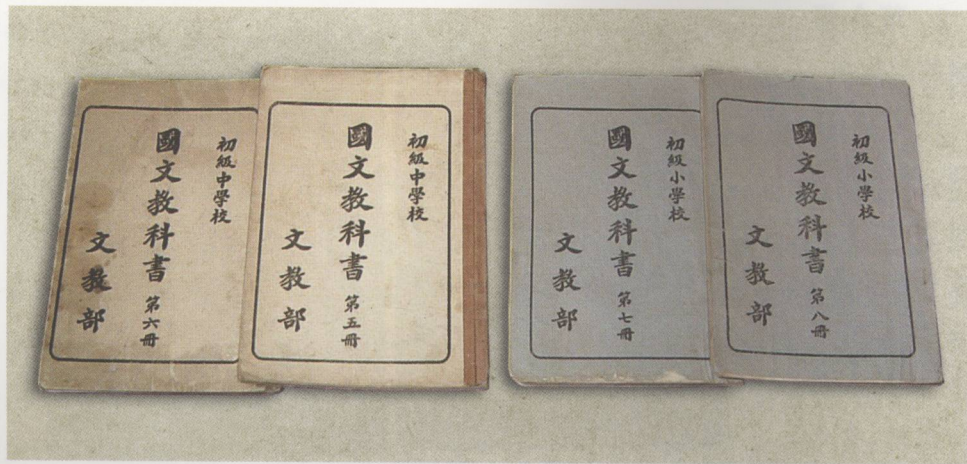 初級中學校
國文教科書 第六冊
文教部
初級中學校
國文教科書 第五冊
文教部
初級小學校
國文教科書 第七冊
文教部
初級小學校
國文教科書 第八冊
文教部